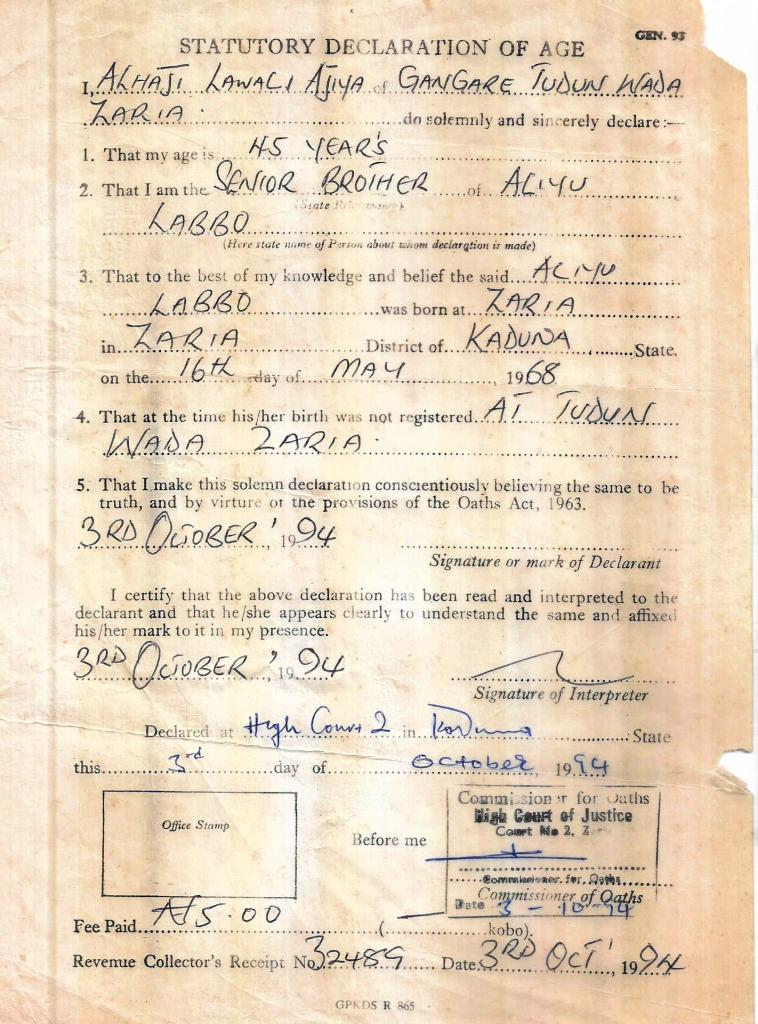 GEN. 93
STATUTORY DECLARATION OF AGE
I, ALHAJI LAWALI AJIYA of GANGARE TUDUN WADA
ZARIA. do solemnly and sincerely declare:—
1. That my age is 45 YEAR'S
2. That I am the SENIOR BROTHER of ALIYU
(State Relationship)
LABBO
(Here state name of Person about whom declaration is made)
3. That to the best of my knowledge and belief the said ALIYU
LABBO was born at ZARIA
in ZARIA District of KADUNA State.
on the 16th day of MAY, 1968
4. That at the time his/her birth was not registered AT TUDUN
WADA ZARIA.
5. That I make this solemn declaration conscientiously believing the same to be
truth, and by virture of the provisions of the Oaths Act, 1963.
3RD OCTOBER', 1994
Signature or mark of Declarant
I certify that the above declaration has been read and interpreted to the
declarant and that he/she appears clearly to understand the same and affixed
his/her mark to it in my presence.
3RD OCTOBER', 1994
Signature of Interpreter
Declared at High Court 2 in Kaduna State
this 3rd day of October, 1994
Office Stamp
Before me
Commissioner for Oaths
High Court of Justice
Court No 2,
Commissioner for Oaths
Commissioner of Oaths
Date 3-10-94
Fee Paid ₦5.00 ( — kobo).
Revenue Collector's Receipt No 32489 Date 3RD OCT' 1994
GPKDS R 865